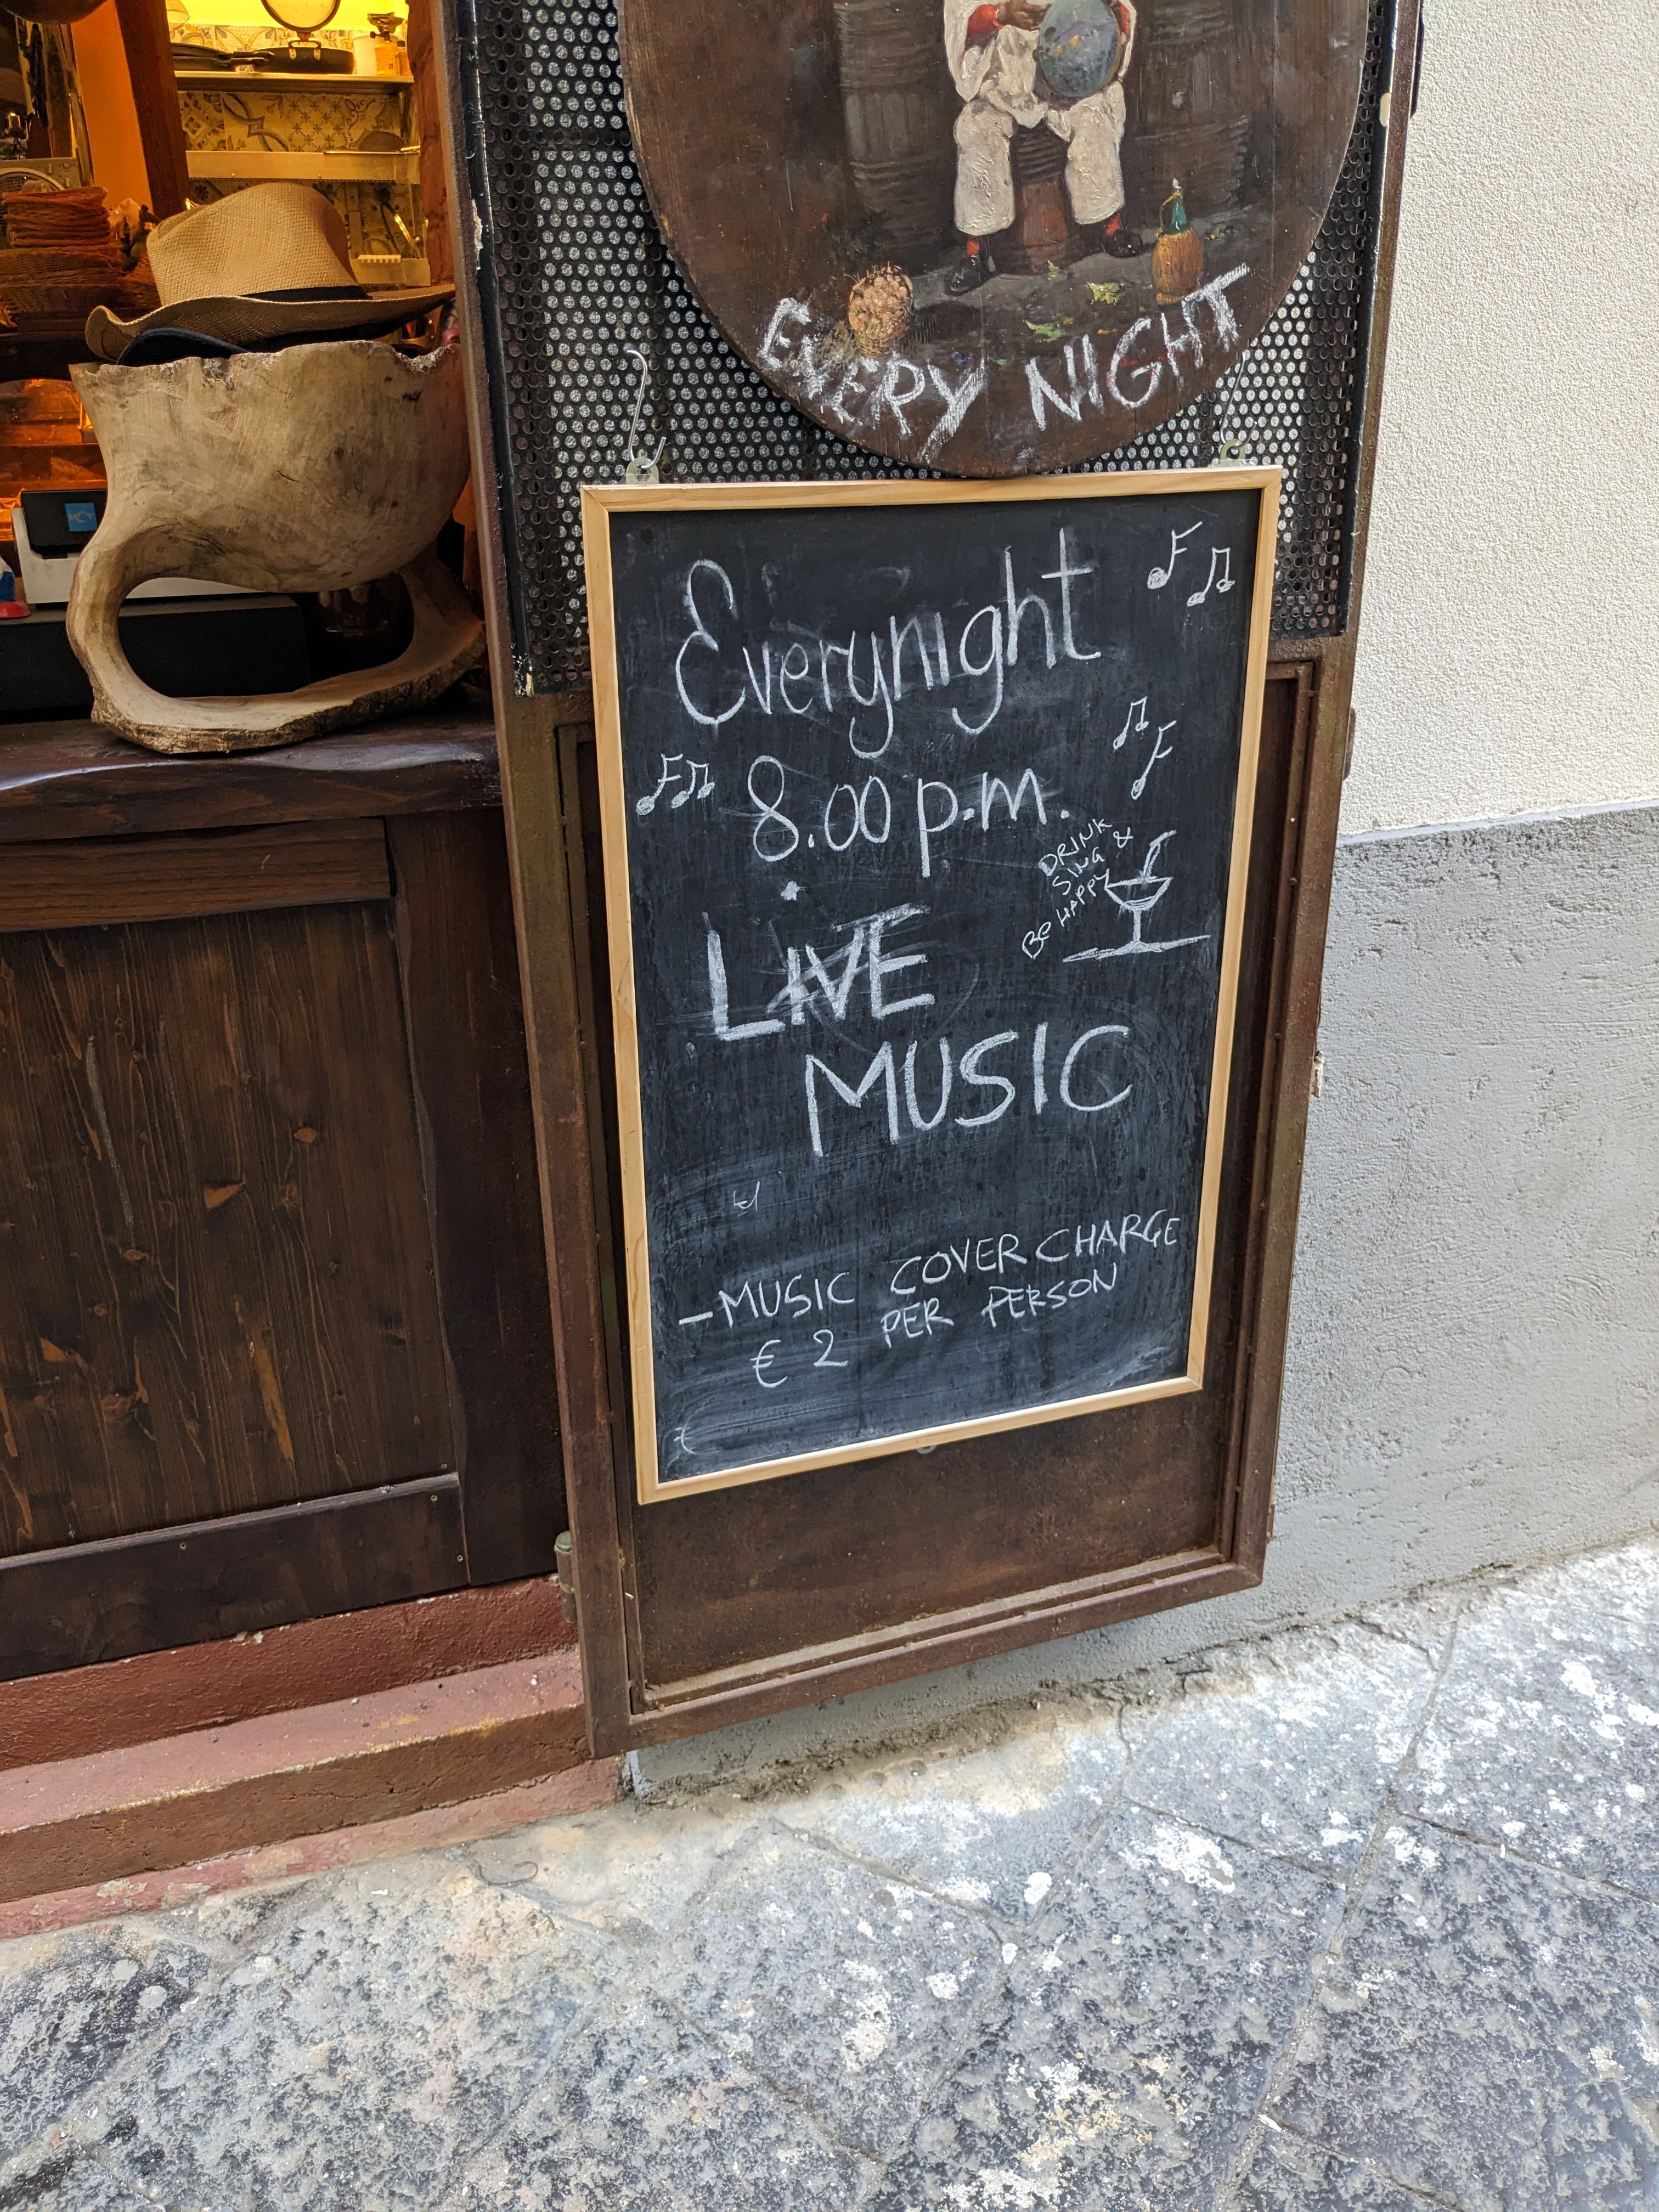 EVERY NIGHT
Everynight
8.00 p.m.
DRINK
SING &
BE HAPPY
LIVE
MUSIC
-MUSIC COVER CHARGE
€ 2 PER PERSON
€